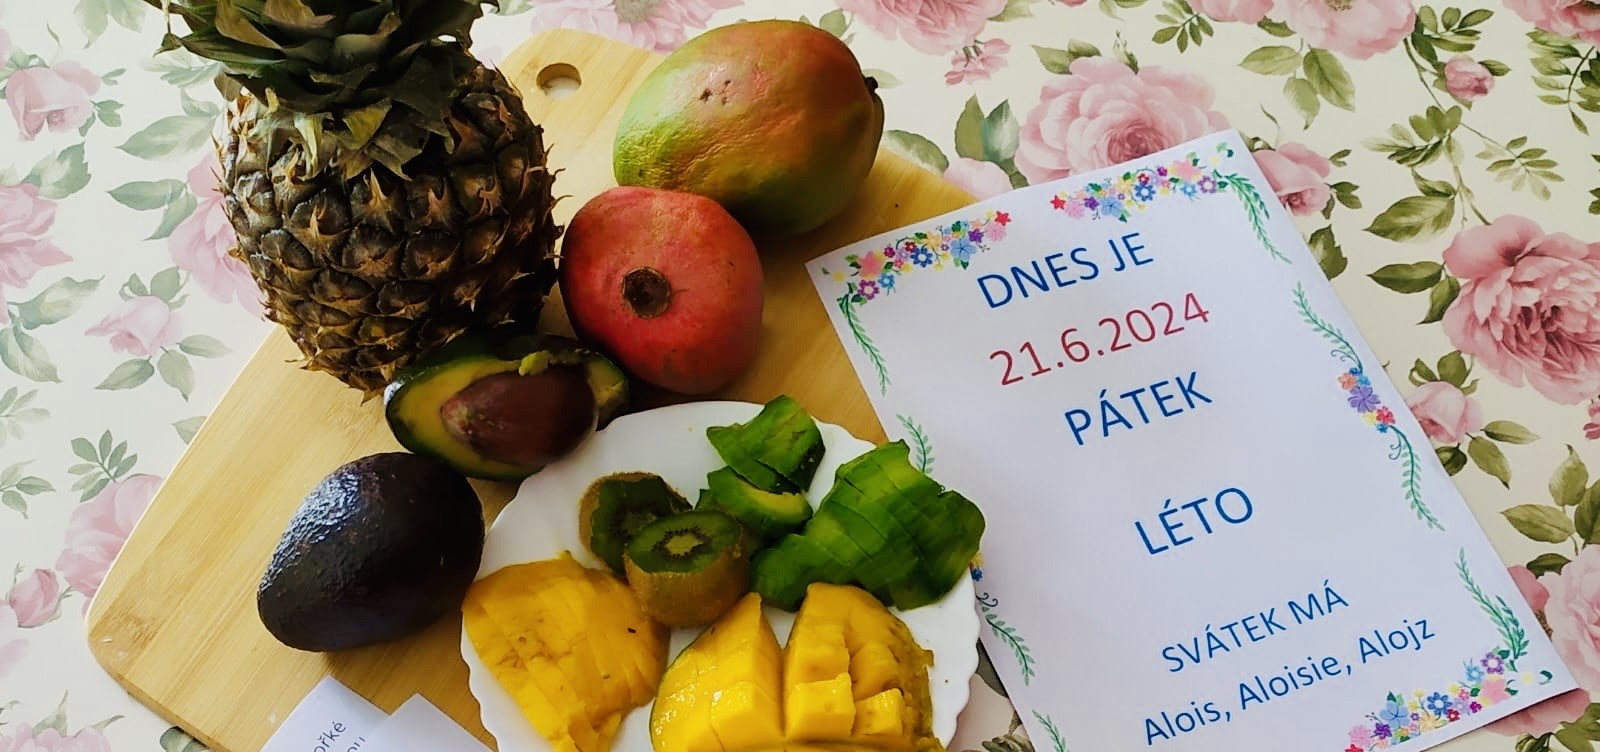 DNES JE
21.6.2024
PÁTEK
LÉTO
SVÁTEK MÁ
Alois, Aloisie, Alojz